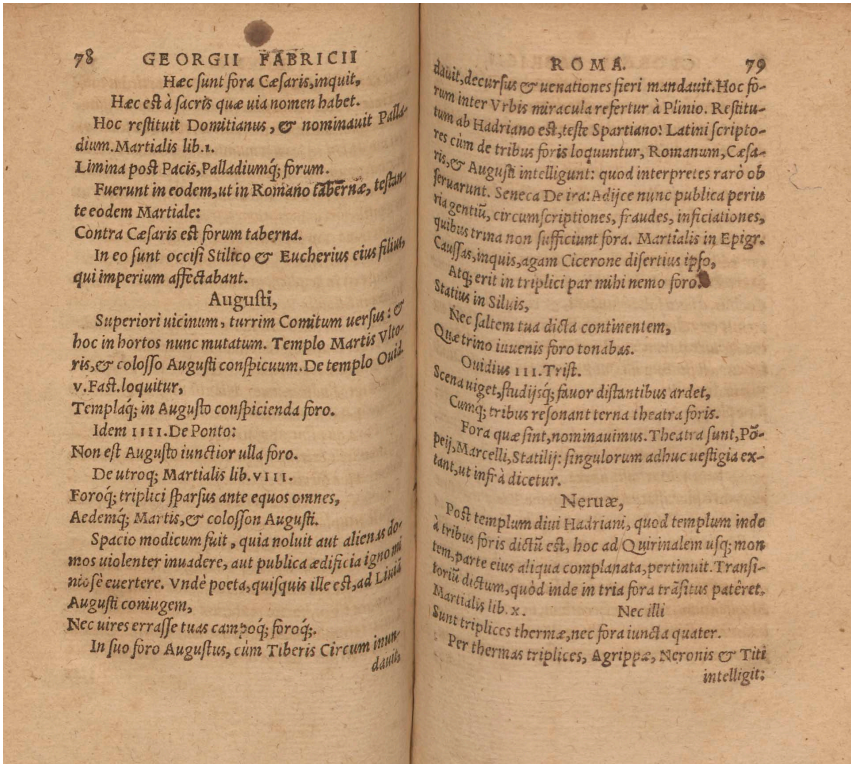 78 GEORGII FABRICII
Hæc sunt fora Cæsaris, inquit,
Hæc est à sacris quæ uia nomen habet.
Hoc restituit Domitianus, & nominauit Palla-
dium. Martialis lib. 1.
Limina post Pacis, Palladiumq́; forum.
Fuerunt in eodem, ut in Romano tabernæ, testan-
te eodem Martiale:
Contra Cæsaris est forum taberna.
In eo sunt occisi Stilico & Eucherius eius filius,
qui imperium affectabant.
Augusti,
Superiori uicinum, turrim Comitum uersus: &
hoc in hortos nunc mutatum. Templo Martis Vlto-
ris, & colosso Augusti conspicuum. De templo Ouid.
v. Fast. loquitur,
Templaq́; in Augusto conspicienda foro.
Idem IIII. De Ponto:
Non est Augusto iunctior ulla foro.
De utroq; Martialis lib. VIII.
Foroq́; triplici sparsus ante equos omnes,
Aedemq́; Martis, & colosson Augusti.
Spacio modicum fuit, quia noluit aut alienas do-
mos uiolenter inuadere, aut publica ædificia ignomi
niosè euertere. Vndè poeta, quisquis ille est, ad Liuiā
Augusti coniugem,
Nec uires errasse tuas campoq́; foroq́;.
In suo foro Augustus, cùm Tiberis Circum inun-
dauit,
ROMA. 79
dauit, decursus & uenationes fieri mandauit. Hoc fo-
rum inter Vrbis miracula refertur à Plinio. Restitu-
tum ab Hadriano est, teste Spartiano: Latini scripto-
res cùm de tribus foris loquuntur, Romanum, Cæsa-
ris, & Augusti intelligunt: quod interpretes rarò ob
seruarunt. Seneca De ira: Adijce nunc publica periu
ria gentiū, circumscriptiones, fraudes, inficiationes,
quibus trina non sufficiunt fora. Martialis in Epigr.
Caussas, inquis, agam Cicerone disertius ipso,
Atq; erit in triplici par mihi nemo foro.
Statius in Siluis,
Nec saltem tua dicta continentem,
Quæ trino iuuenis foro tonabas.
Ouidius III. Trist.
Scena uiget, studijsq́; fauor distantibus ardet,
Cumq́; tribus resonant terna theatra foris.
Fora quæ sint, nominauimus. Theatra sunt, Pō-
peij, Marcelli, Statilij: singulorum adhuc uestigia ex-
tant, ut infrà dicetur.
Neruæ,
Post templum diui Hadriani, quod templum inde
à tribus foris dictū est, hoc ad Quirinalem usq; mon
tem, parte eius aliqua complanata, pertinuit. Transi-
toriū dictum, quòd inde in tria fora trāsitus patêret.
Martialis lib. x. Nec illi
Sunt triplices thermæ, nec fora iuncta quater.
Per thermas triplices, Agrippæ, Neronis & Titi
intelligit: